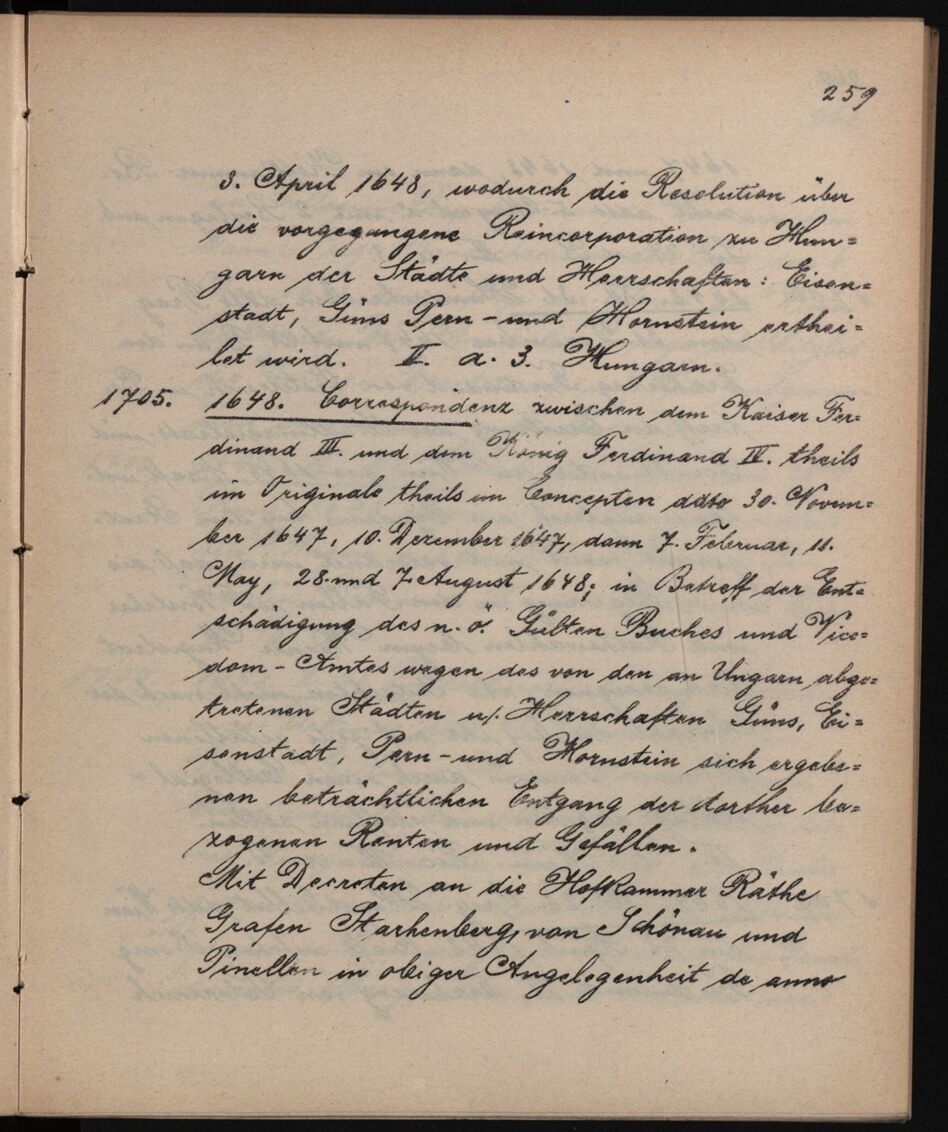 259
3. April 1648, wodurch die Resolution über
die vorgegangene Reincorporation zu Hun=
garn der Städte und Herrschaften: Eisen=
stadt, Güns Pern- und Hornstein erthei=
let wird. II. a. 3. Hungarn.
1705. 1648. Correspondenz zwischen dem Kaiser Fer=
dinand III. und dem König Ferdinand IV. theils
im Originale theils im Concepten ddto 30. Novem=
ber 1647, 10. Dezember 1647, dann 7. Februar, 11.
May, 28. und 7. August 1648; in Betreff der Ent=
schädigung des n. ö. Gülten Buches und Vice=
dom-Amtes wegen des von den an Ungarn abge=
tretenen Städten u/. Herrschaften Güns, Ei=
senstadt, Pern- und Hornstein sich ergebe=
nen beträchtlichen Entgang der dorther be=
zogenen Renten und Gefällen.
Mit Decreten an die Hofkammer Räthe
Grafen Starhenberg, von Schönau und
Pinellen in obiger Angelegenheit de anno